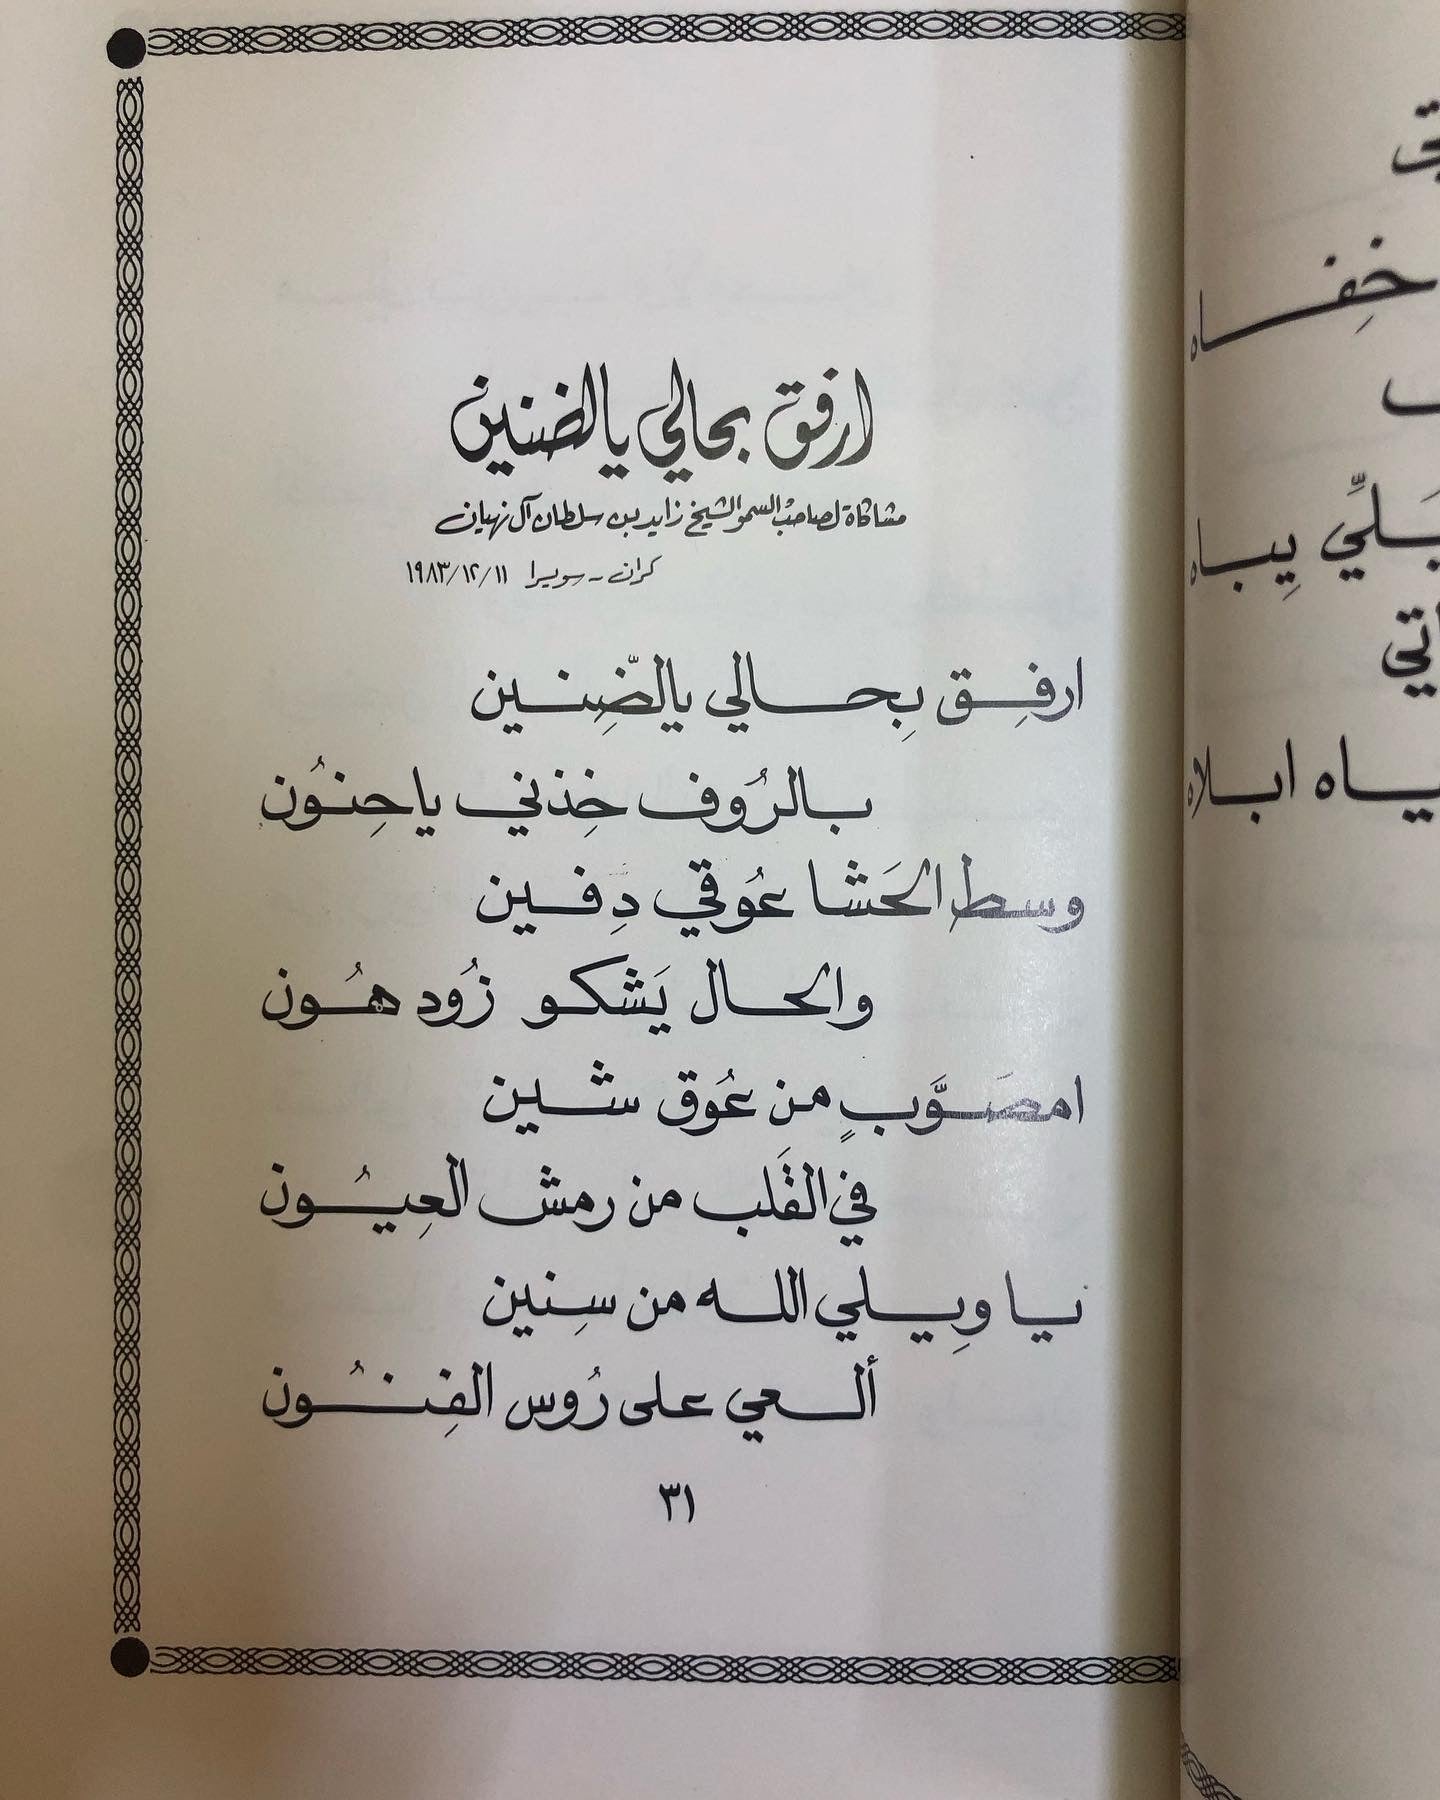 ارفق بحالي يالضنين
مشاكاة لصاحب السمو الشيخ زايد بن سلطان آل نهيان
كران - سويسرا ١١/١٢/١٩٨٣
ارفِـق بِحـالي يالضِّنـين
بـالرُوف خِذني ياحِنُون
وسط الحَشا عُوقي دِفـين
والحـال يَشكـو زُود هُـون
امصَـوَّبٍ من عُوق شـين
في القَلب من رمش العِيُـون
يـا وِيـلي اللـه من سِنين
ألـعي على رُوس الفِنـُـون
٣١
خِفـاه
يِبـاه
ابـلاه